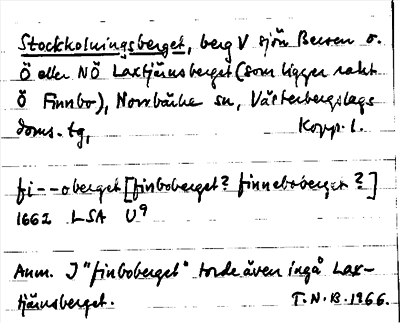 Stockkolningsberget, berg V sjön Beeren o.
Ö eller NÖ Laxtjärnsberget (som ligger rakt
Ö Finnbo), Norrbärke sn, Västerbergslags
doms. tg, Kopp. l.
fi--oberget [finboberget? finneboberget?]
1662 LSA U9
Anm. I "finboberget" torde även ingå Lax-
tjärnsberget. T.N.B. 1966.